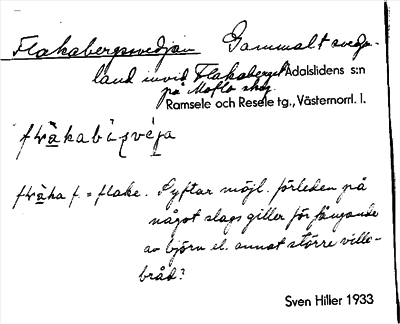 Flakabergsvedjan Gammalt svedje-
land invid Flakaberget Ådalslidens s:n
på Moflo skog.
Ramsele och Resele tg., Västernorrl. l.
flaka f. = flake. Syftar möjl. förleden på
något slags giller för fångande
av björn el. annat större ville-
bråd?
Sven Hiller 1933